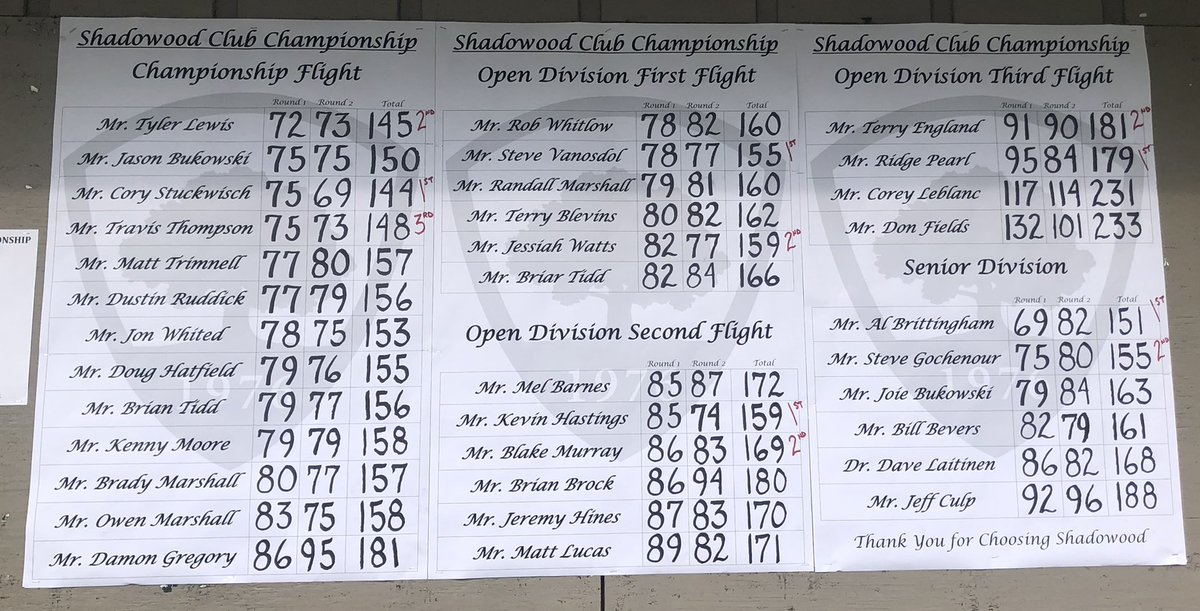 NSHIP
Shadowood Club Championship
Championship Flight
Round 1 Round 2 Total
Mr. Tyler Lewis 72 73 145 2ND
Mr. Jason Bukowski 75 75 150
Mr. Cory Stuckwisch 75 69 144 1ST
Mr. Travis Thompson 75 73 148 3RD
Mr. Matt Trimnell 77 80 157
Mr. Dustin Ruddick 77 79 156
Mr. Jon Whited 78 75 153
Mr. Doug Hatfield 79 76 155
Mr. Brian Tidd 79 77 156
Mr. Kenny Moore 79 79 158
Mr. Brady Marshall 80 77 157
Mr. Owen Marshall 83 75 158
Mr. Damon Gregory 86 95 181
Shadowood Club Championship
Open Division First Flight
Round 1 Round 2 Total
Mr. Rob Whitlow 78 82 160
Mr. Steve Vanosdol 78 77 155 1ST
Mr. Randall Marshall 79 81 160
Mr. Terry Blevins 80 82 162
Mr. Jessiah Watts 82 77 159 2ND
Mr. Briar Tidd 82 84 166
Open Division Second Flight
Round 1 Round 2 Total
Mr. Mel Barnes 85 87 172
Mr. Kevin Hastings 85 74 159 1ST
Mr. Blake Murray 86 83 169 2ND
Mr. Brian Brock 86 94 180
Mr. Jeremy Hines 87 83 170
Mr. Matt Lucas 89 82 171
Shadowood Club Championship
Open Division Third Flight
Round 1 Round 2 Total
Mr. Terry England 91 90 181 2ND
Mr. Ridge Pearl 95 84 179 1ST
Mr. Corey Leblanc 117 114 231
Mr. Don Fields 132 101 233
Senior Division
Round 1 Round 2 Total
Mr. Al Brittingham 69 82 151 1ST
Mr. Steve Gochenour 75 80 155 2ND
Mr. Joie Bukowski 79 84 163
Mr. Bill Bevers 82 79 161
Dr. Dave Laitinen 86 82 168
Mr. Jeff Culp 92 96 188
Thank You for Choosing Shadowood